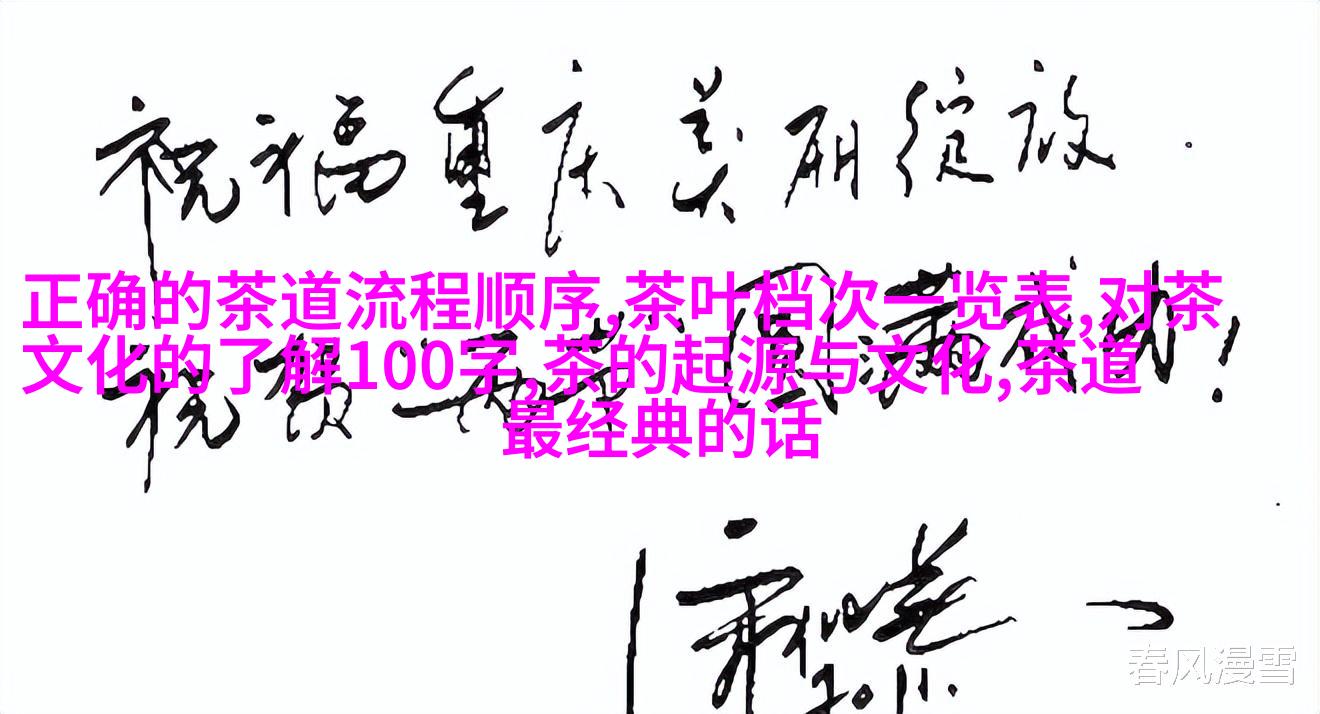 祝福重庆美丽绽放.
正确的茶道流程顺序,茶叶档次一览表,对茶
文化的了解100字,茶的起源与文化,茶道
最经典的话
祝贺
圆满成功!
2011.
春风漫雪